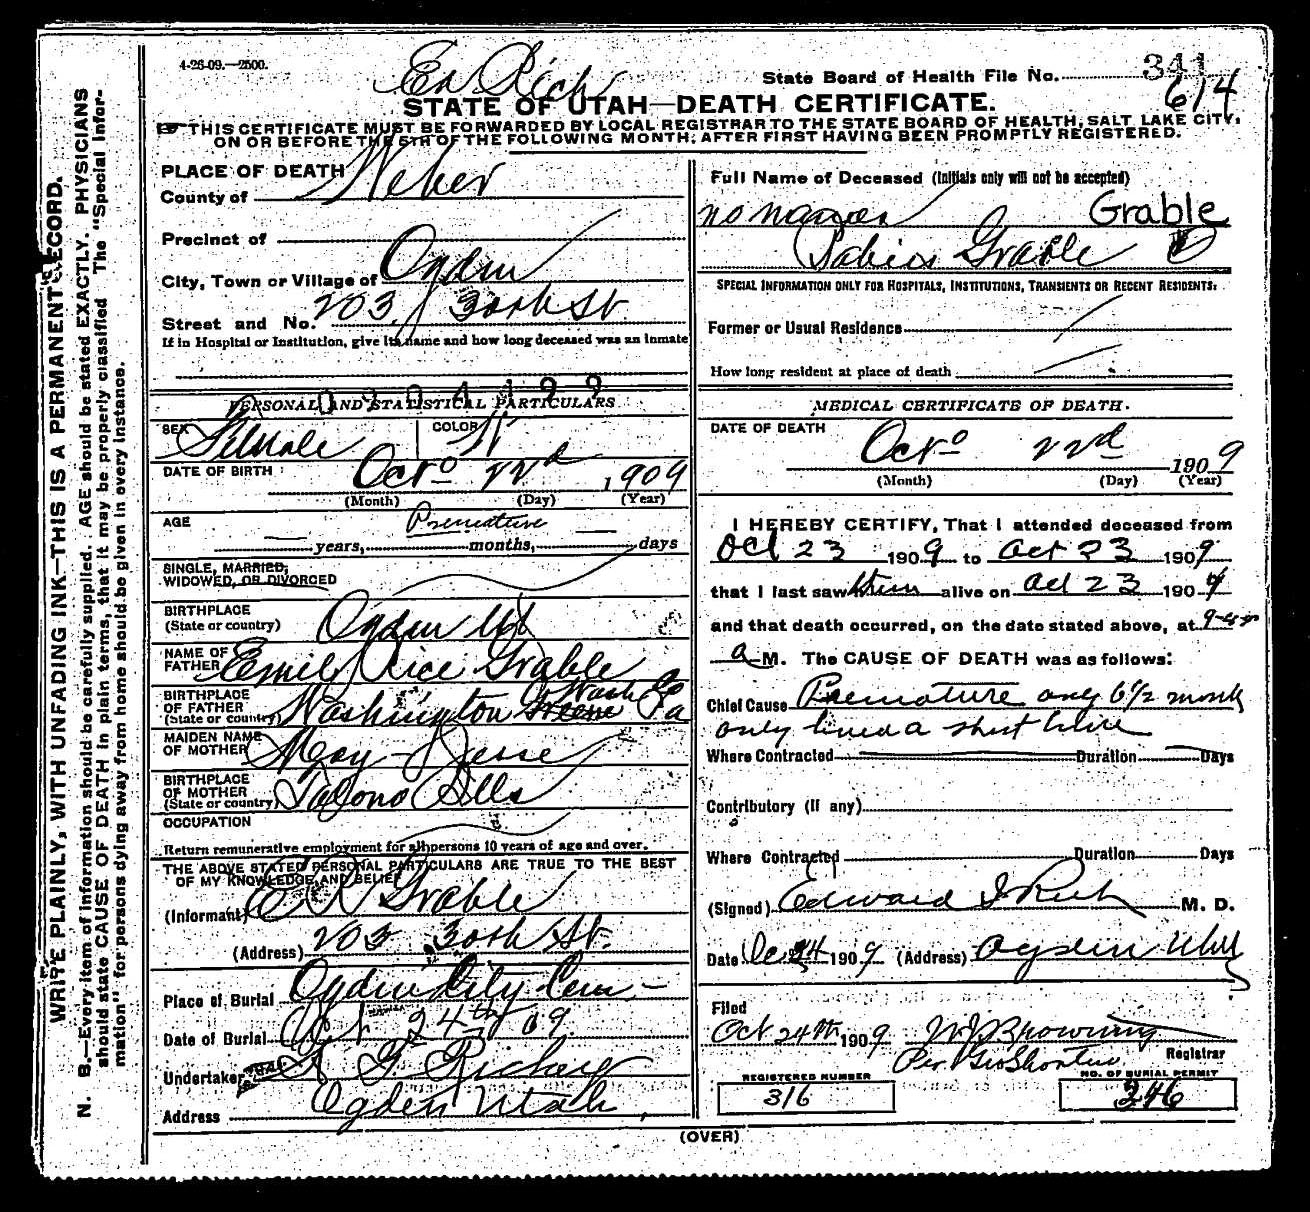 4-26-09.—2500.
Ed Rich
State Board of Health File No. 341
614
STATE OF UTAH—DEATH CERTIFICATE.
THIS CERTIFICATE MUST BE FORWARDED BY LOCAL REGISTRAR TO THE STATE BOARD OF HEALTH, SALT LAKE CITY,
ON OR BEFORE THE 5TH OF THE FOLLOWING MONTH; AFTER FIRST HAVING BEEN PROMPTLY REGISTERED.
WRITE PLAINLY, WITH UNFADING INK—THIS IS A PERMANENT RECORD.
N. B.—Every item of information should be carefully supplied. AGE should be stated EXACTLY. PHYSICIANS
should state CAUSE OF DEATH in plain terms, that it may be properly classified The "Special Infor-
mation" for persons dying away from home should be given in every instance.
PLACE OF DEATH
County of Weber
Precinct of
City, Town or Village of Ogden
Street and No. 203 30th St
If in Hospital or Institution, give its name and how long deceased was an inmate
PERSONAL AND STATISTICAL PARTICULARS
SEX Female COLOR W
DATE OF BIRTH Oct 22nd 1909
(Month) (Day) (Year)
AGE Premature
years, months, days
SINGLE, MARRIED,
WIDOWED, OR DIVORCED
BIRTHPLACE
(State or country) Ogden Ut
NAME OF
FATHER Emil Rice Grable
BIRTHPLACE
OF FATHER
(State or country) Washington Greene Wash Co Pa
MAIDEN NAME
OF MOTHER May Jesse
BIRTHPLACE
OF MOTHER
(State or country) Ills
OCCUPATION
Return remunerative employment for all persons 10 years of age and over.
THE ABOVE STATED PERSONAL PARTICULARS ARE TRUE TO THE BEST
OF MY KNOWLEDGE AND BELIEF
(Informant) E R Grable
(Address) 203 30th St.
Place of Burial Ogden City Cem
Date of Burial Oct 24th 09
Undertaker Richey
Address Ogden Utah
Full Name of Deceased (Initials only will not be accepted)
no name Grable
Grable
SPECIAL INFORMATION ONLY FOR HOSPITALS, INSTITUTIONS, TRANSIENTS OR RECENT RESIDENTS.
Former or Usual Residence
How long resident at place of death
MEDICAL CERTIFICATE OF DEATH.
DATE OF DEATH
Oct 22nd 1909
(Month) (Day) (Year)
I HEREBY CERTIFY, That I attended deceased from
Oct 23 1909 to Oct 23 1909
that I last saw alive on Oct 23 1909
and that death occurred, on the date stated above, at
a M. The CAUSE OF DEATH was as follows:
Chief Cause Premature only 6 1/2 month
only lived a short time
Where Contracted Duration Days
Contributory (if any)
Where Contracted Duration Days
(Signed) Edward I Rich M. D.
Date 24 1909 (Address) Ogden Utah
Filed
Oct 24th 1909 W J Browning
Per Geo Shorten Registrar
REGISTERED NUMBER
316
NO. OF BURIAL PERMIT
246
(OVER)